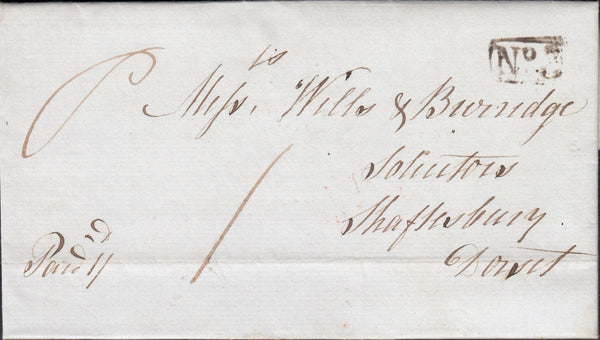 No
Messrs Wills & Burridge
Solicitors
Shaftesbury
Dorset
Paid 11d